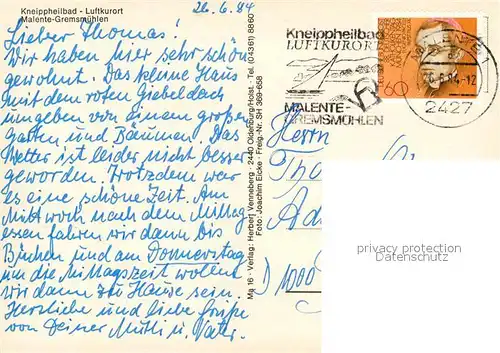 Kneippheilbad - Luftkurort
Malente-Gremsmühlen
26.6.84
Lieber Thomas!
Wir haben hier sehr schön
gewohnt. Das kleine Haus
mit dem roten Giebeldach
umgeben von einem großen
Garten und Bäumen. Das
Wetter ist leider nicht besser
geworden. Trotzdem war
es eine schöne Zeit. Am
Mittwoch nach dem Mittag
essen fahren wir dann bis
Büchen und am Donnerstag
um die Mittagszeit wollen
wir dann zu Hause sein.
Herzliche und liebe Grüße
von Deiner Mutti u. Vater.
Ma 16 - Verlag: Herbert Venneberg - 2440 Oldenburg/Holst. - Tel. (04361) 8860
Foto: Joachim Eicke - Freig.-Nr. SH 369-658
Kneippheilbad
LUFTKURORT
MALENTE-
GREMSMÜHLEN
60
MALENTE 1
26.6.84-12
2427
Herrn
D 1000
privacy protection
Datenschutz